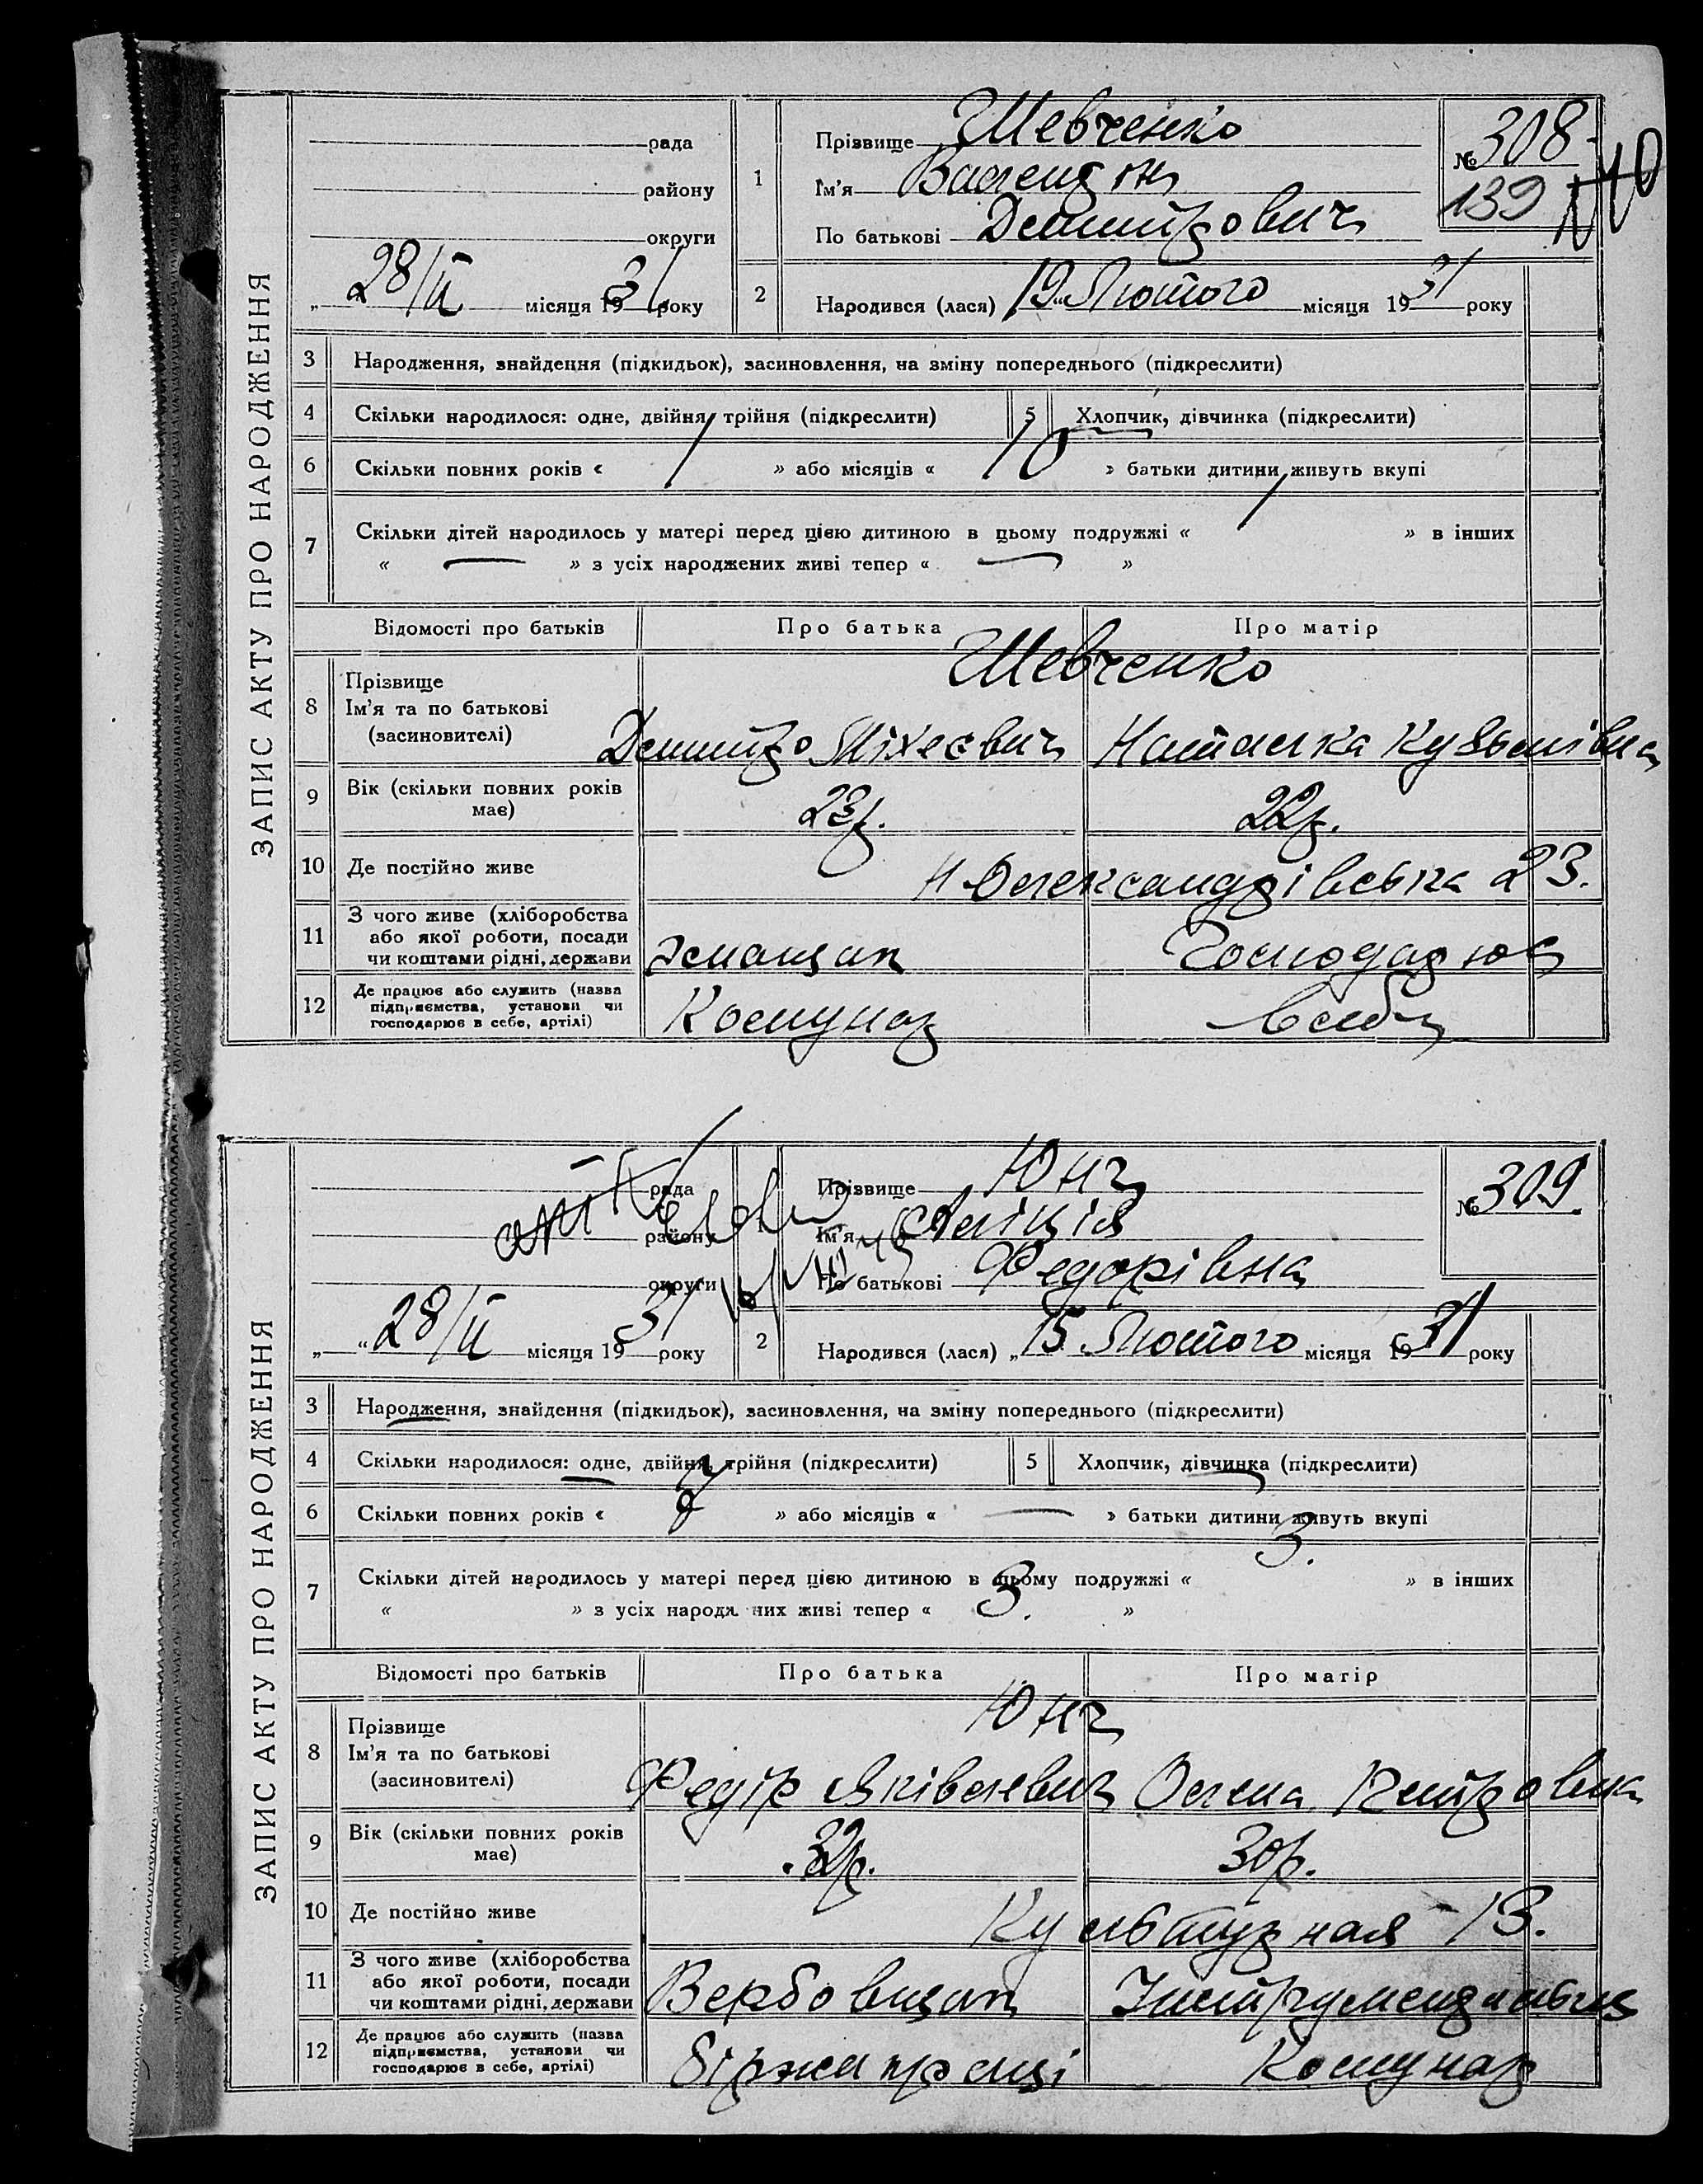 ЗАПИС АКТУ ПРО НАРОДЖЕННЯ
рада
району
округи
28/II місяця 1931 року
1 Прізвище Шевченко
Ім'я Валентин
По батькові Дмитрович
№ 308
139
2 Народився (лася) 19 Лютого місяця 1931 року
3 Народження, знайдення (підкидьок), засиновлення, на зміну попереднього (підкреслити)
4 Скільки народилося: одне, двійня, трійня (підкреслити) 5 Хлопчик, дівчинка (підкреслити)
6 Скільки повних років « 1 » або місяців « 10 » батьки дитини живуть вкупі
7 Скільки дітей народилось у матері перед цією дитиною в цьому подружжі « 1 » в інших
« — » з усіх народжених живі тепер « — »
Відомості про батьків Про батька Про матір
8 Прізвище Шевченко
Ім'я та по батькові
(засиновителі) Дмитро Міхеєвич Наталка Кузьмівна
9 Вік (скільки повних років має) 23р. 22р.
10 Де постійно живе Н Олександрівська 23.
11 З чого живе (хліборобства
або якої роботи, посади
чи коштами рідні, держави Господарює
12 Де працює або служить (назва
підприємства, установи чи
господарює в себе, артілі) Комунар в себе
ЗАПИС АКТУ ПРО НАРОДЖЕННЯ
рада
району
округи
„ “ 28/II місяця 1931 року
1 Прізвище Юнг
Ім'я Аліція
По батькові Федорівна
№ 309.
2 Народився (лася) „15 Лютого місяця 1931 року
3 Народження, знайдення (підкидьок), засиновлення, на зміну попереднього (підкреслити)
4 Скільки народилося: одне, двійня, трійня (підкреслити) 5 Хлопчик, дівчинка (підкреслити)
6 Скільки повних років « » або місяців « — » батьки дитини живуть вкупі
7 Скільки дітей народилось у матері перед цією дитиною в цьому подружжі « 3. » в інших
« » з усіх народж них живі тепер « 3. »
Відомості про батьків Про батька Про матір
8 Прізвище Юнг
Ім'я та по батькові
(засиновителі) Федір Яківлевич Олена
9 Вік (скільки повних років має) 32р. 30р.
10 Де постійно живе Культурная 13.
11 З чого живе (хліборобства
або якої роботи, посади
чи коштами рідні, держави Вербовщик
12 Де працює або служить (назва
підприємства, установи чи
господарює в себе, артілі) біржа праці Комунар